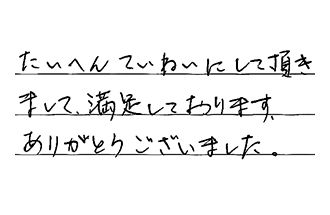 たいへんていねいにして頂き
まして、満足しております。
ありがとうございました。